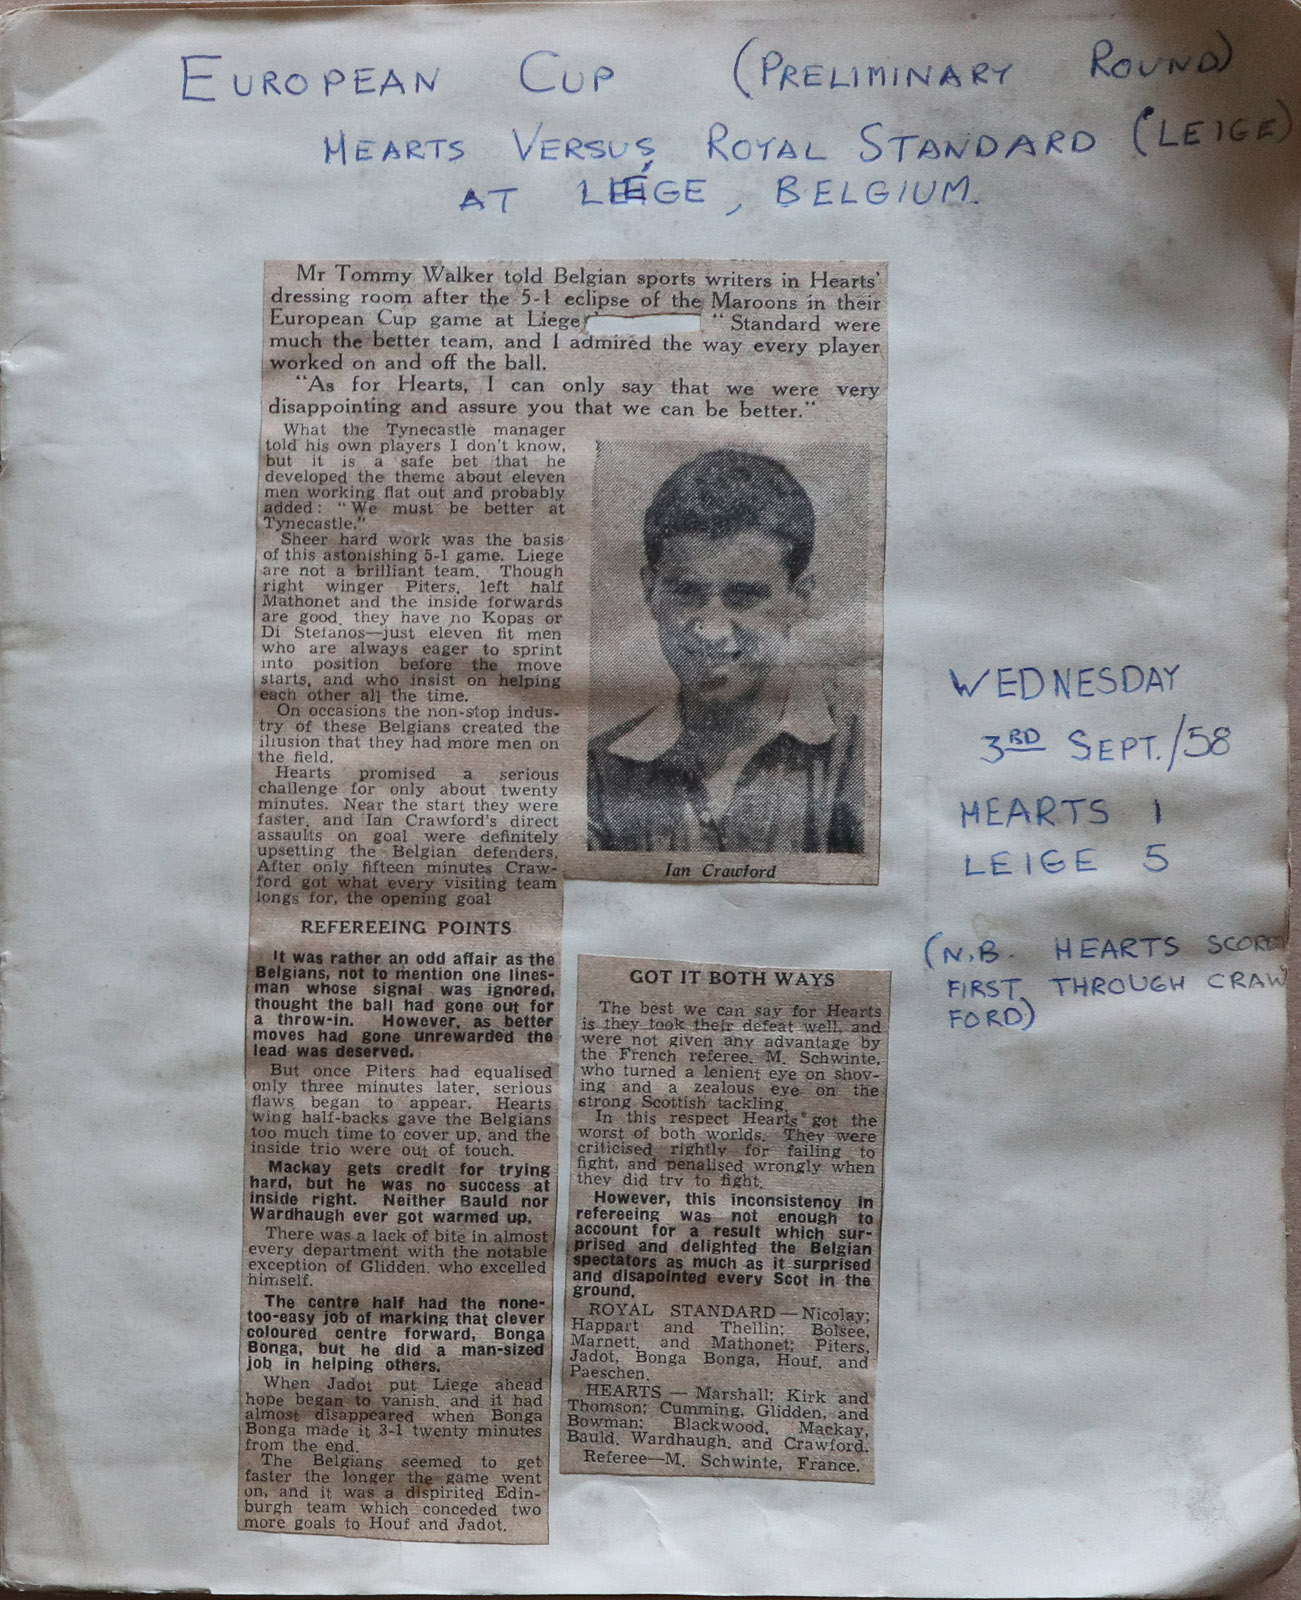 EUROPEAN CUP (PRELIMINARY ROUND)
HEARTS VERSUS ROYAL STANDARD (LEIGE)
AT LIÉGE, BELGIUM.
Mr Tommy Walker told Belgian sports writers in Hearts'
dressing room after the 5-1 eclipse of the Maroons in their
European Cup game at Liege "Standard were
much the better team, and I admired the way every player
worked on and off the ball.
"As for Hearts, I can only say that we were very
disappointing and assure you that we can be better."
What the Tynecastle manager
told his own players I don't know,
but it is a safe bet that he
developed the theme about eleven
men working flat out and probably
added: "We must be better at
Tynecastle."
Sheer hard work was the basis
of this astonishing 5-1 game. Liege
are not a brilliant team. Though
right winger Piters, left half
Mathonet and the inside forwards
are good, they have no Kopas or
Di Stefanos—just eleven fit men
who are always eager to sprint
into position before the move
starts, and who insist on helping
each other all the time.
On occasions the non-stop indus-
try of these Belgians created the
illusion that they had more men on
the field.
Hearts promised a serious
challenge for only about twenty
minutes. Near the start they were
faster, and Ian Crawford's direct
assaults on goal were definitely
upsetting the Belgian defenders.
After only fifteen minutes Craw-
ford got what every visiting team
longs for, the opening goal
REFEREEING POINTS
It was rather an odd affair as the
Belgians, not to mention one lines-
man whose signal was ignored,
thought the ball had gone out for
a throw-in. However, as better
moves had gone unrewarded the
lead was deserved.
But once Piters had equalised
only three minutes later, serious
flaws began to appear. Hearts
wing half-backs gave the Belgians
too much time to cover up, and the
inside trio were out of touch.
Mackay gets credit for trying
hard, but he was no success at
inside right. Neither Bauld nor
Wardhaugh ever got warmed up.
There was a lack of bite in almost
every department with the notable
exception of Glidden, who excelled
himself.
The centre half had the none-
too-easy job of marking that clever
coloured centre forward, Bonga
Bonga, but he did a man-sized
job in helping others.
When Jadot put Liege ahead
hope began to vanish, and it had
almost disappeared when Bonga
Bonga made it 3-1 twenty minutes
from the end.
The Belgians seemed to get
faster the longer the game went
on, and it was a dispirited Edin-
burgh team which conceded two
more goals to Houf and Jadot.
Ian Crawford
GOT IT BOTH WAYS
The best we can say for Hearts
is they took their defeat well, and
were not given any advantage by
the French referee, M. Schwinte,
who turned a lenient eye on shov-
ing and a zealous eye on the
strong Scottish tackling.
In this respect Hearts got the
worst of both worlds. They were
criticised rightly for failing to
fight, and penalised wrongly when
they did try to fight.
However, this inconsistency in
refereeing was not enough to
account for a result which sur-
prised and delighted the Belgian
spectators as much as it surprised
and disapointed every Scot in the
ground.
ROYAL STANDARD—Nicolay;
Happart and Thellin; Bolsee,
Marnett, and Mathonet; Piters,
Jadot, Bonga Bonga, Houf, and
Paeschen.
HEARTS — Marshall; Kirk and
Thomson; Cumming, Glidden, and
Bowman; Blackwood, Mackay,
Bauld, Wardhaugh, and Crawford.
Referee—M. Schwinte, France.
WEDNESDAY
3RD SEPT./58
HEARTS 1
LEIGE 5
(N.B. HEARTS SCORED
FIRST THROUGH CRAW
FORD)